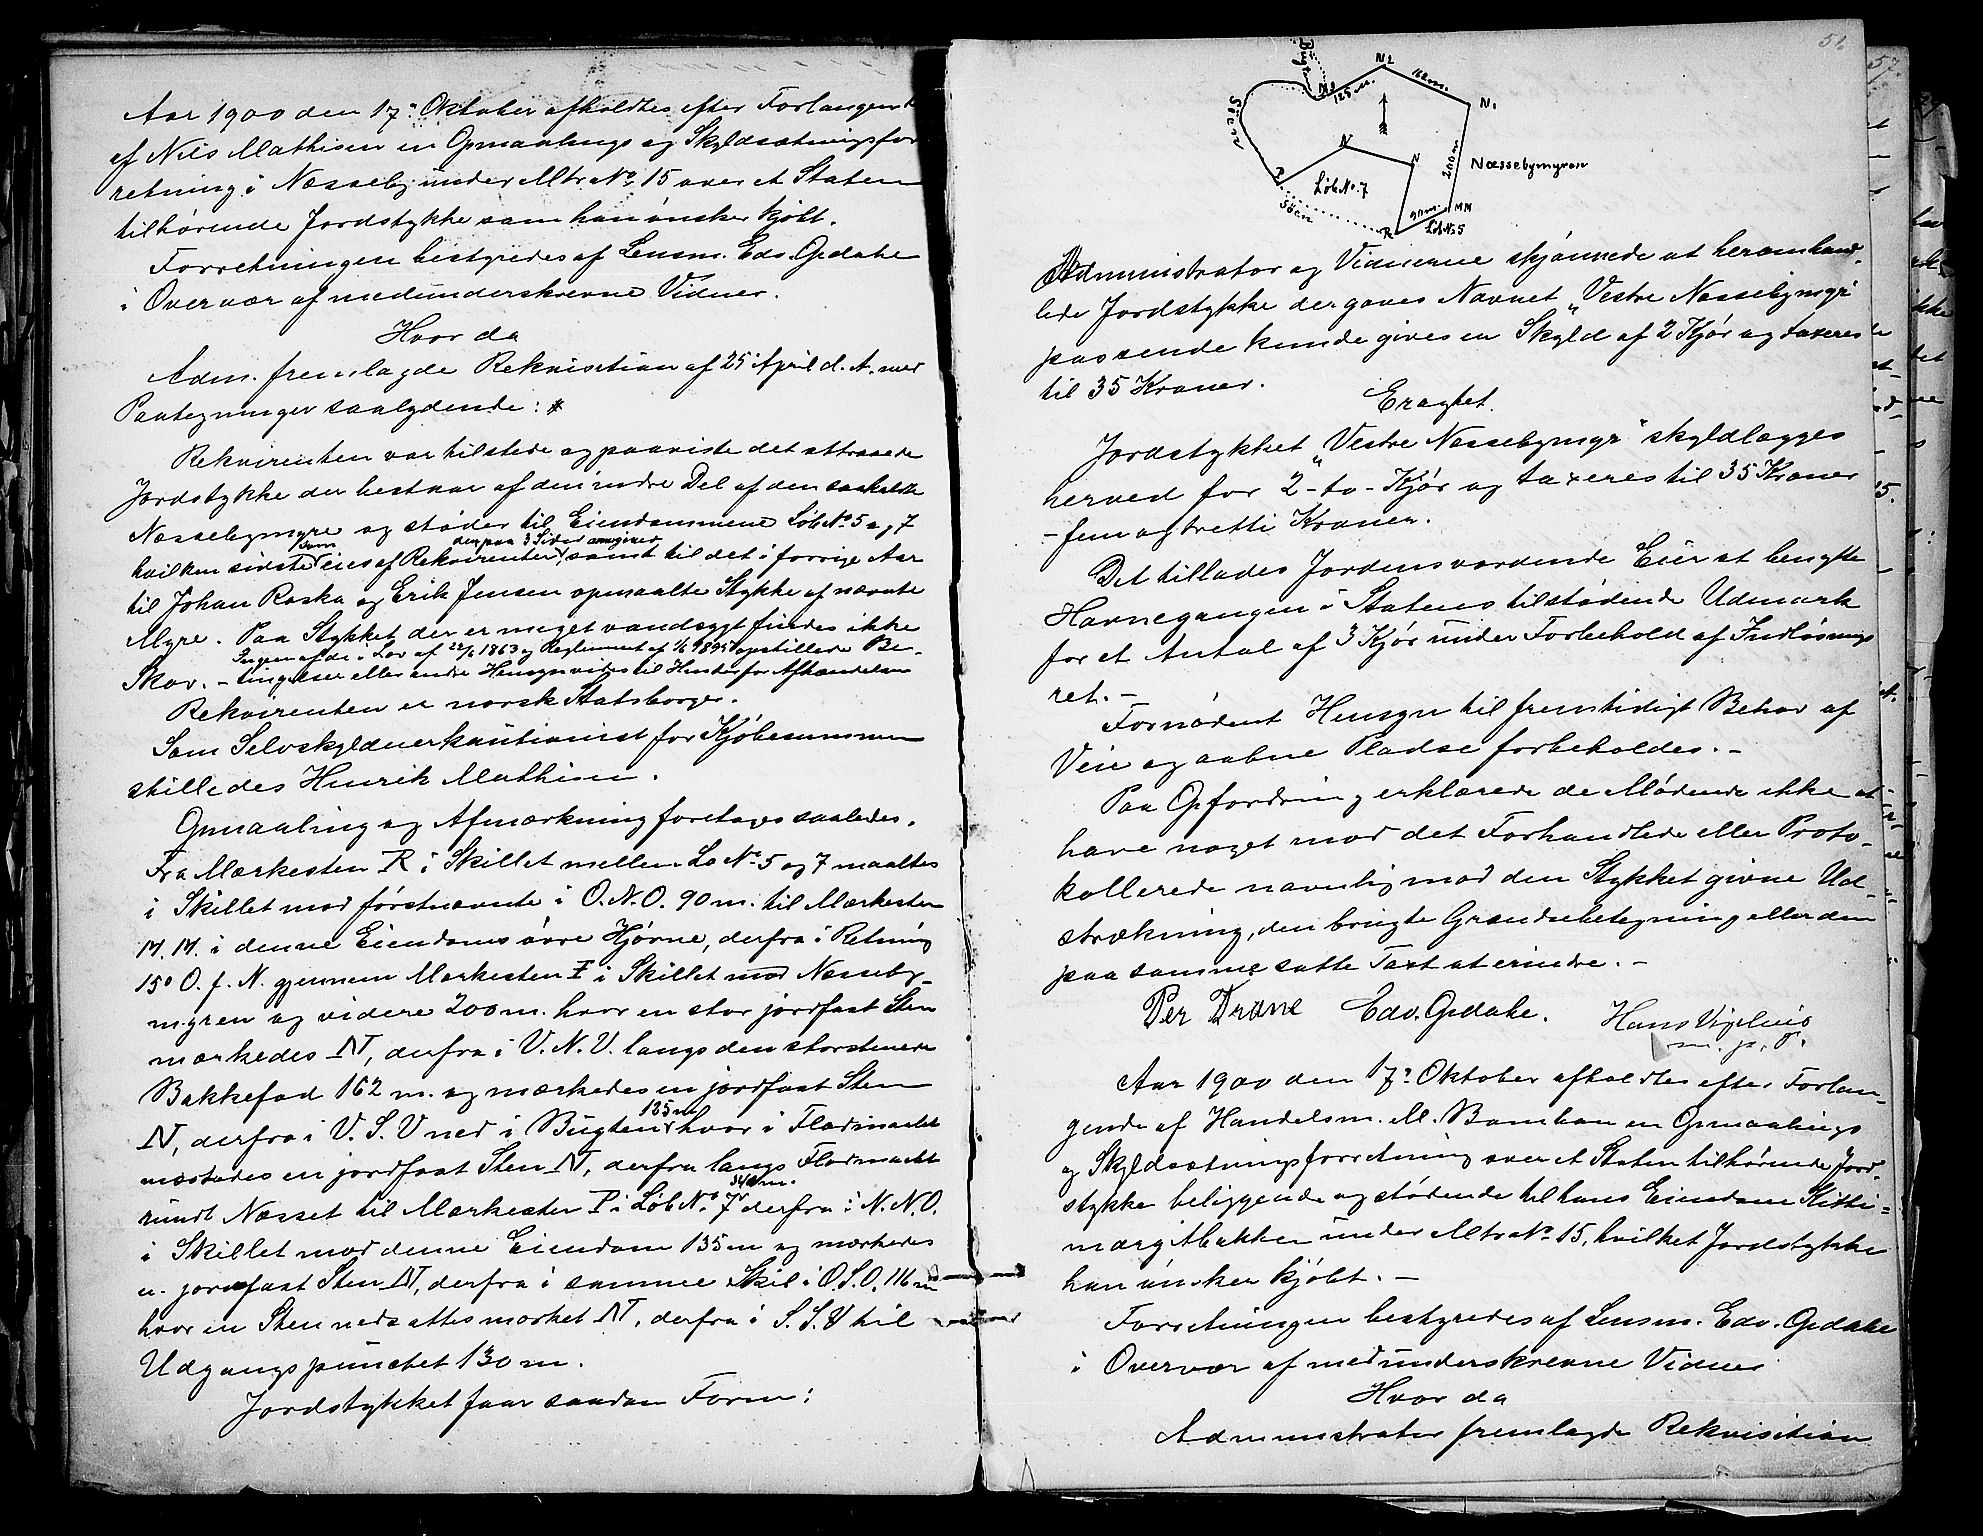 Aar 1900 den 17. Oktober afholdtes efter Forlangende
af Nils Mathisen en Opmaalings og Skyldsætningsfor
retning i Næsseby under Mtr No 15 over et Staten
tilhørende Jordstykke som han ønsker kjøbt.
Forretningen bestyredes af Lensm. Edv. Gedahe
i Overvær af medunderskrevne Vidner.
Hvor da
Adm. fremlagde Rekvisition af 25 April d. A. med
Paategninger saalydende: *
Rekvirenten var tilstede og paaviste det attraaede
Jordstykke der bestaar af den indre Del af den saakaldte
Næssebymyre og støder til Eiendommene Løb No 5 og 7
som der paa 3 Sider omgives
hvilken sidste eies af Rekvirenten, samt til det i forrige Aar
til Johan Raska og Erik Jensen opmaalte Stykke af nævnte
Myre. Paa Stykket der er meget vandsygt findes ikke
Ingen af de i Lov af 22/6 1863 og Reglement af 1/6 9895 opstillede Be-
Skov. - tingelser eller andre Hensyn vides til Hinder for Afhændelsen
Rekvirenten er norsk Statsborger.
Som Selvskyldnerkautionist for Kjøbesummen
stilledes Henrik Mathisen.
Opmaaling og Afmærkning foretoges saaledes.
Fra Mærkesten R i Skillet mellem Lo No 5 og 7 maaltes
i Skillet mod førstnævnte i O.N.O. 90 m. til Mærkesten
M. M. i denne Eiendoms øvre Hjørne, derfra i Retning
15° O. f. N. gjennem Mærkesten I i Skillet mod Næsseby-
myren og videre 200 m. hvor en stor jordfast Sten
mærkedes N, derfra i V. N. V. langs den storstenede
Bakkefod 162 m. og mærkedes en jordfast Sten
125 m
N, derfra i V. S. V ned i Bugten hvor i Flodmaalet
mærkedes en jordfast Sten N, derfra langs Flodmaalet
340 m.
rundt Næsset til Mærkesten P i Løb No 7 derfra i N. N. O.
i Skillet mod denne Eiendom 135 m og mærkedes
en jordfast Sten N, derfra i samme Skil i O. S. O. 116 m
hvor en Sten nedsattes mærket N, derfra i S. S. V til
Udgangspunctet 130 m.
Jordstykket faar saadan Form:
56
57.
Bugt
N2
162 m.
N3
125 m.
N1
Søen
N
N
200 m
Næssebymyren
P
Løb No. 7
Søen
90 m.
MM
R
Løb No 5
Administrator og Vidnerne skjønnede at heromhand-
lede Jordstykke der gaves Navnet "Vestre Næssebymyr"
passende kunde gives en Skyld af 2 Kjør og taxeres
til 35 Kroner.
Eragtet.
Jordstykket "Vestre Næssebymyr" skyldlægges
herved for 2 - to - Kjør og taxeres til 35 Kroner
- fem og tretti Kroner.
Det tillades Jordens vordende Eier at benytte
Havnegangen i Statens tilstødende Udmark
for et Antal af 3 Kjør under Forbehold af Indløsnings
ret. -
Fornødent Hensyn til fremtidigt Behov af
Veie og aabne Pladse forbeholdes. -
Paa Opfordring erklærede de Mødende ikke at
have noget mod det Forhandlede eller Proto-
kollerede navnlig mod den Stykket givne Ud-
strækning, den brugte Grændsebetegning eller den
paa samme satte Taxt at erindre. -
Per Trane Edv. Gedahe. Hans Vigelius
m. p. P.
Aar 1900 den 17. Oktober afholdtes efter Forlan-
gende af Handelsm. M. Bomban en Opmaalings
og Skyldsætningsforretning over et Staten tilhørende Jord-
stykke beliggende og stødende til hans Eiendom Kitti-
margitbakken under Mtr No 15, hvilket Jordstykke
han ønsker kjøbt. -
Forretningen bestyredes af Lensm. Edv. Gedahe
i Overvær af medunderskrevne Vidner
Hvor da
Administrator fremlagde Rekvisition